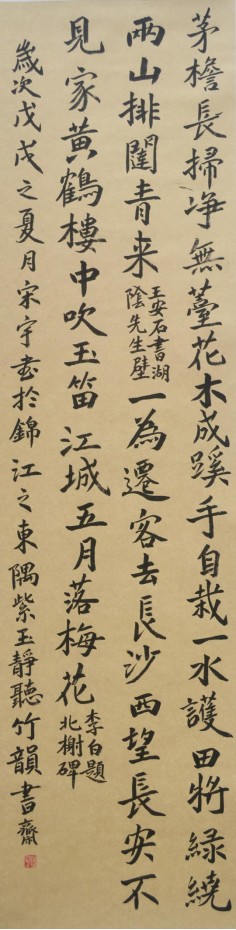 茅檐長掃净無薹花木成蹊手自栽一水護田将緑繞
兩山排闥青来王安石書湖陰先生壁一為遷客去長沙西望長安不
見家黄鶴樓中吹玉笛江城五月落梅花李白題北榭碑
歲次戊戌之夏月宋宇書於錦江之東隅紫玉靜聽竹韻書齋